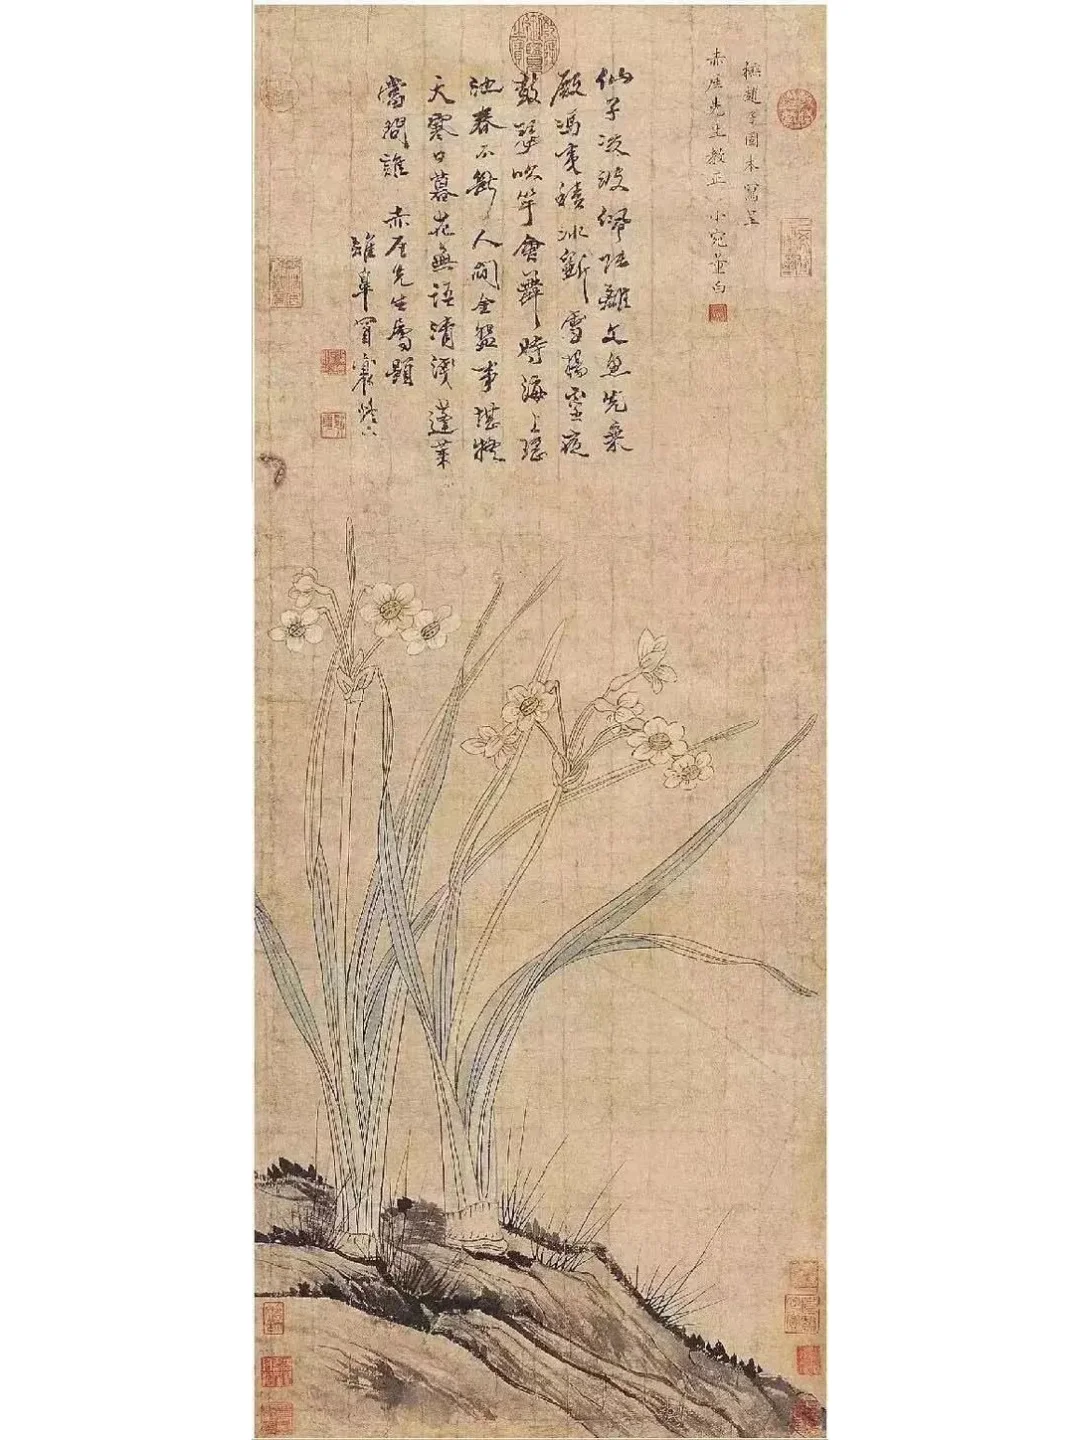 橅趙子固本寫呈
赤厓先生教正 小宛董白
仙子淩波佩陸離文魚先乘
殿馮夷積冰斲雪揚靈夜
鼓瑟吹竽會舞時海上瑤
池春不斷人間金盌事堪疑
天寒日暮花無語清淺蓬萊
當問誰 赤厓先生屬題
雉皋冒襄